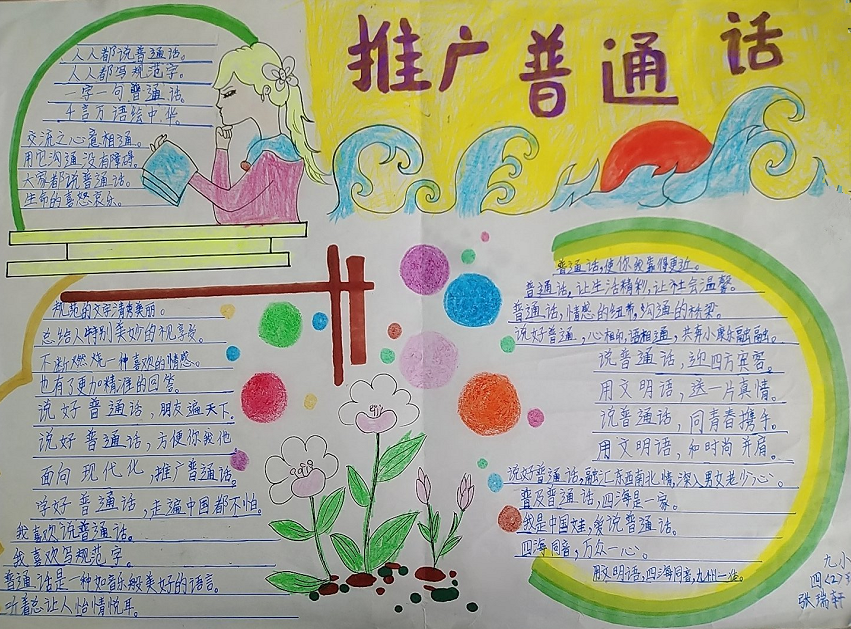 推广普通话
人人都说普通话。
人人都写规范字。
一字一句普通话。
千言万语绘中华。
交流之心意相通。
用它沟通没有障碍。
大家都说普通话。
生命的喜怒哀乐。
规范的文字清秀美丽。
总给人特别美妙的视享受。
不断燃烧一种喜欢的情感。
也有了更加精准的回答。
说好普通话，朋友遍天下。
说好普通话，方便你我他
面向现代化，推广普通话。
学好普通话，走遍中国都不怕。
我喜欢说普通话。
我喜欢写规范字。
普通话是一种如音乐般美好的语言。
听着总让人怡情悦耳。
普通话，使你我靠得更近。
普通话，让生活精彩，让社会温馨。
普通话，情感的纽带，沟通的桥梁。
说好普通，心相印，语相通，共奔小康乐融融。
说普通话，迎四方宾客。
用文明语，送一片真情。
说普通话，同青春携手。
用文明语，和时尚并肩。
说好普通话，融汇东西南北情，深入男女老少心。
普及普通话，四海是一家。
我是中国娃，爱说普通话。
四海同音，万众一心。
用文明语，四海同音，九州一
九小
四(2)
张瑞轩